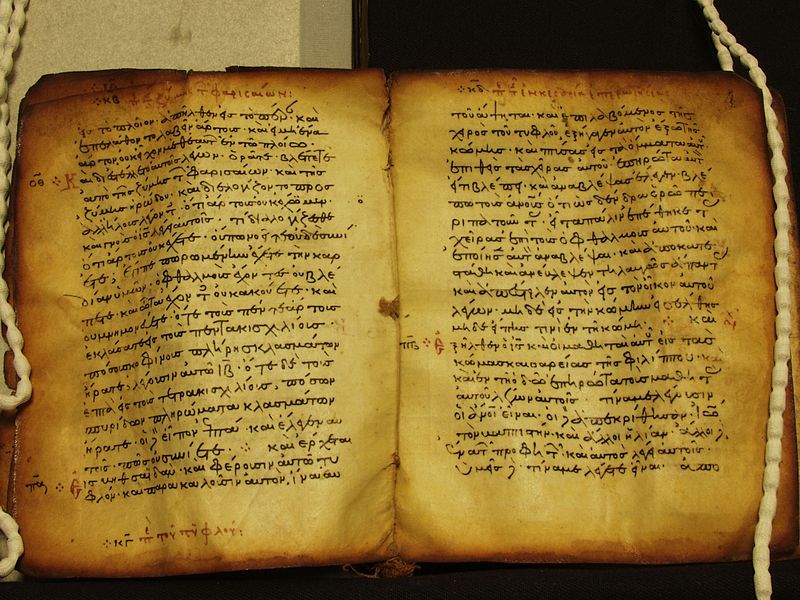 κβ π τ ζύμης τ φαρισαίων:
εἰς τὸ πλοῖον· ἀπῆλθεν εἰς τὸ πέραν· καὶ
ἐπελάθοντο λαβεῖν ἄρτους· καὶ εἰ μὴ ἕνα
ἄρτον οὐκ εἶχον μεθ' ἑαυτῶν ἐν τῷ πλοίῳ·
οθ καὶ διεστέλλετο αὐτοῖς λέγων· ὁρᾶτε· βλέπετε
ἀπὸ τῆς ζύμης τ φαρισαίων· καὶ τῆς
ζύμης ἡρώδου· καὶ διελογίζοντο πρὸς
ἀλλήλους λέγοντ· ὅτι ἄρτους οὐκ ἔχομεν·
καὶ γνοὺς ὁ ις λέγει αὐτοῖς· τί διαλογίζεσθε
ὅτι ἄρτους οὐκ ἔχετε· οὔπω νοεῖτε οὐδὲ συνί
ετε· ἔτι πεπωρωμένην ἔχετε τὴν καρ
δίαν ὑμῶν· ὀφθαλμοὺς ἔχοντες οὐ βλέ
πετε· καὶ ὦτα ἔχοντ οὐκ ἀκούετε· καὶ
οὐ μνημονεύετε· ὅτε τοὺς πέντε ἄρτους
ἔκλασα εἰς τοὺς πεντακισχιλίους·
πόσους κοφίνους πλήρεις κλασμάτων
ἤρατε· λέγουσιν αὐτῷ ΙΒ· ὅτε δὲ τοὺς
ἑπτὰ εἰς τοὺς τετρακισχιλίους· πόσων
σπυρίδων πληρώματα κλασμάτων
ἤρατε· οἱ δὲ εἶπον ἑπτά· καὶ ἔλεγεν αὐ
τοῖς· πῶς οὐ συνίετε· καὶ ἔρχεται
πα εἰς βηθσαϊδάν· καὶ φέρουσιν αὐτῷ τυ
φλόν· καὶ παρακαλοῦσιν αὐτὸν ἵνα αὐ
κγ π τοῦ τυφλοῦ:
κδ π τῆς ἐν καισαρεία ἐπερωτήσεως
τοῦ ἅψηται· καὶ ἐπιλαβόμενος τῆς
χειρὸς τοῦ τυφλοῦ ἐξήγαγεν αὐτὸν ἔξω τῆς
κώμης· καὶ πτύσας εἰς τὰ ὄμματα αὐτ
ἐπιθεὶς τὰς χεῖρας αὐτοῦ· ἐπηρώτα αὐτ
εἴ τι βλέπει· καὶ ἀναβλέψας ἔλεγεν· βλέ
πω τοὺς ἀνους ὅτι ὡς δένδρα ὁρῶ πε
ριπατοῦντ· εἶτα πάλιν ἐπέθηκε τ
χεῖρας ἐπὶ τοὺς ὀφθαλμοὺς αὐτοῦ· καὶ
ἐποίησεν αὐτ ἀναβλέψαι· καὶ ἀποκατε
στάθη καὶ ἀνέβλεψεν τηλαυγῶς ἅπαντ
καὶ ἀπέστειλεν αὐτὸν εἰς τὸν οἶκον αὐτοῦ
λέγων· μηδὲ εἰς τὴν κώμην εἰσέλθης
μηδὲ εἴπης τινὶ ἐν τῇ κώμη· καὶ
πβ ἐξῆλθεν ὁ ις καὶ οἱ μαθηταὶ αὐτ εἰς τὰς
κώμας καισαρείας τῆς φιλίππου· καὶ
καὶ ἐν τῇ ὁδῷ ἐπηρώτα τοὺς μαθητ
αὐτοῦ λέγων αὐτοῖς· τίνα με λέγουσιν
οἱ ἄνοι εἶναι· οἱ δὲ ἀπεκρίθησαν· ἰω
τὸν βαπτιστήν· καὶ ἄλλοι ἠλίαν· ἄλλοι δ
ἕνα τ προφητ· καὶ αὐτὸς λέγει αὐτοῖς·
ὑμεῖς δ τίνα με λέγετε εἶναι· ἀπο